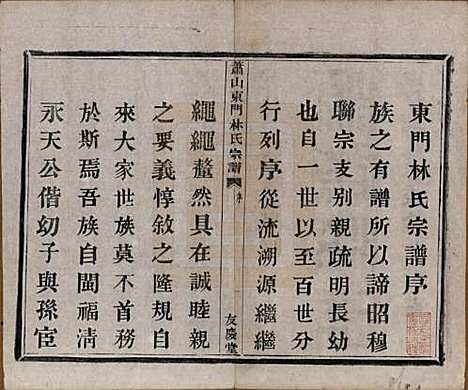 東門林氏宗譜序
族之有譜所以諦昭穆
聯宗支別親疏明長幼
也自一世以至百世分
行列序從流溯源繼繼
蕭山東門林氏宗譜 序 友慶堂
繩繩釐然具在誠睦親
之要義惇敘之隆規自
來大家世族莫不首務
於斯焉吾族自閩福清
永天公偕幼子與孫宦